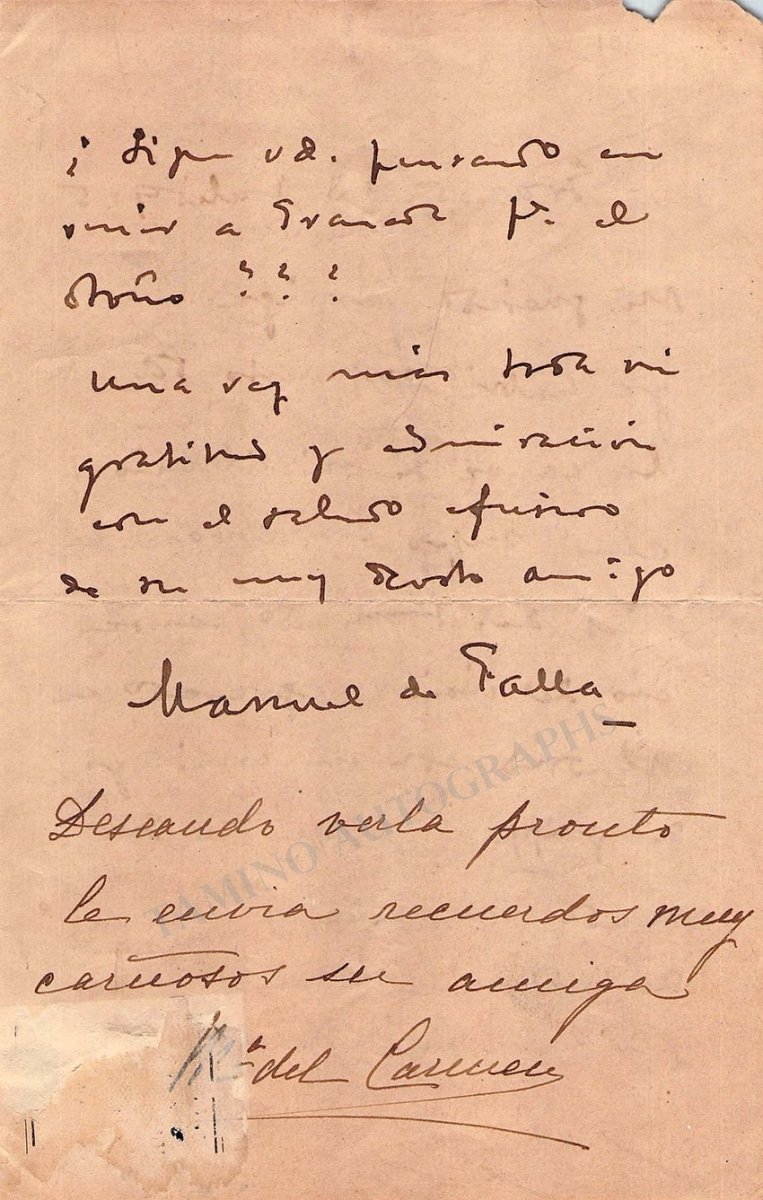 ¿Sigue vd. pensando en
venir a Granada pª. el
otoño???
una vez más toda mi
gratitud y admiración
con el saludo efusivo
de su muy devoto amigo
Manuel de Falla
Deseando verla pronto
le envia recuerdos muy
cariñosos su amiga
Mª del Carmen
TAMINO AUTOGRAPHS